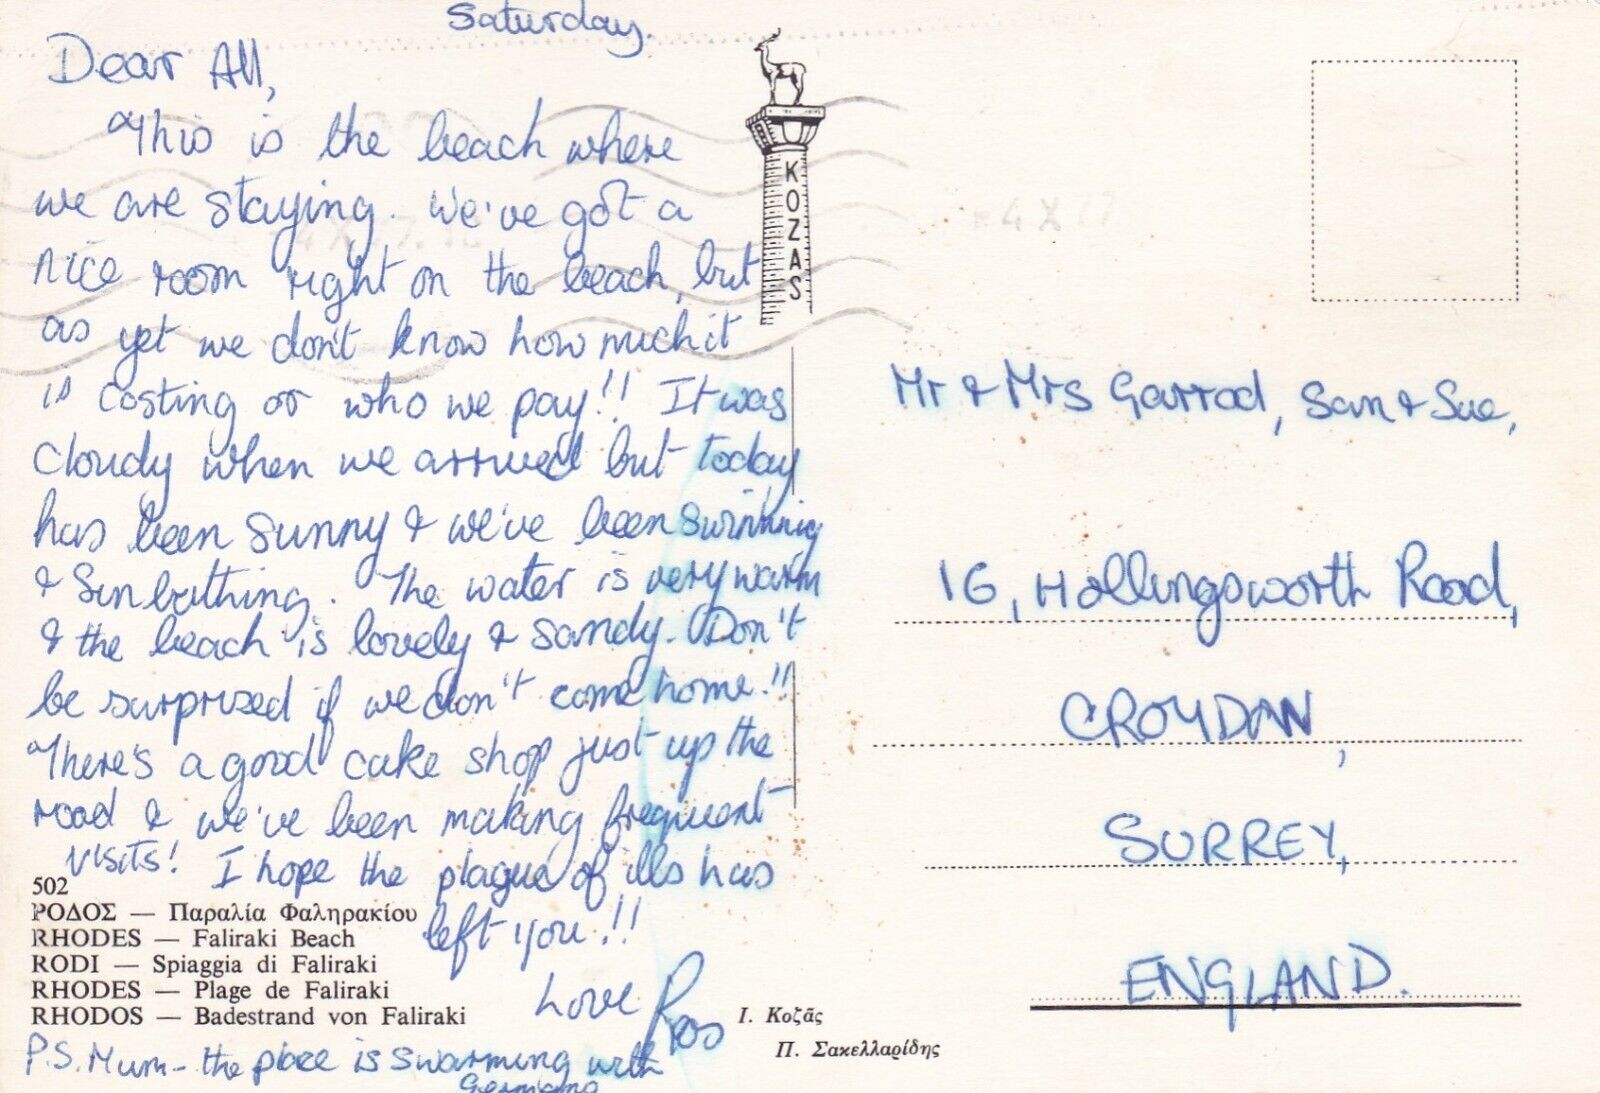 Saturday.
Dear All,
This is the beach where
we are staying. We've got a
nice room right on the beach, but
as yet we don't know how much it
is costing or who we pay!! It was
cloudy when we arrived but today
has been sunny & we've been swimming
& sunbathing. The water is very warm
& the beach is lovely & sandy. Don't
be surprised if we don't come home!!
There's a good cake shop just up the
road & we've been making frequent
visits! I hope the plague of ills has
left you!!
Love Ros
P.S. Mum - the place is swarming with
Germans
502
ΡΟΔΟΣ — Παραλία Φαληρακίου
RHODES — Faliraki Beach
RODI — Spiaggia di Faliraki
RHODES — Plage de Faliraki
RHODOS — Badestrand von Faliraki
KOZAS
Ι. Κοζᾶς
Π. Σακελλαρίδης
Mr & Mrs Garrod, San & Sue,
16, Hollingsworth Road,
CROYDON,
SURREY,
ENGLAND.
4 X 77